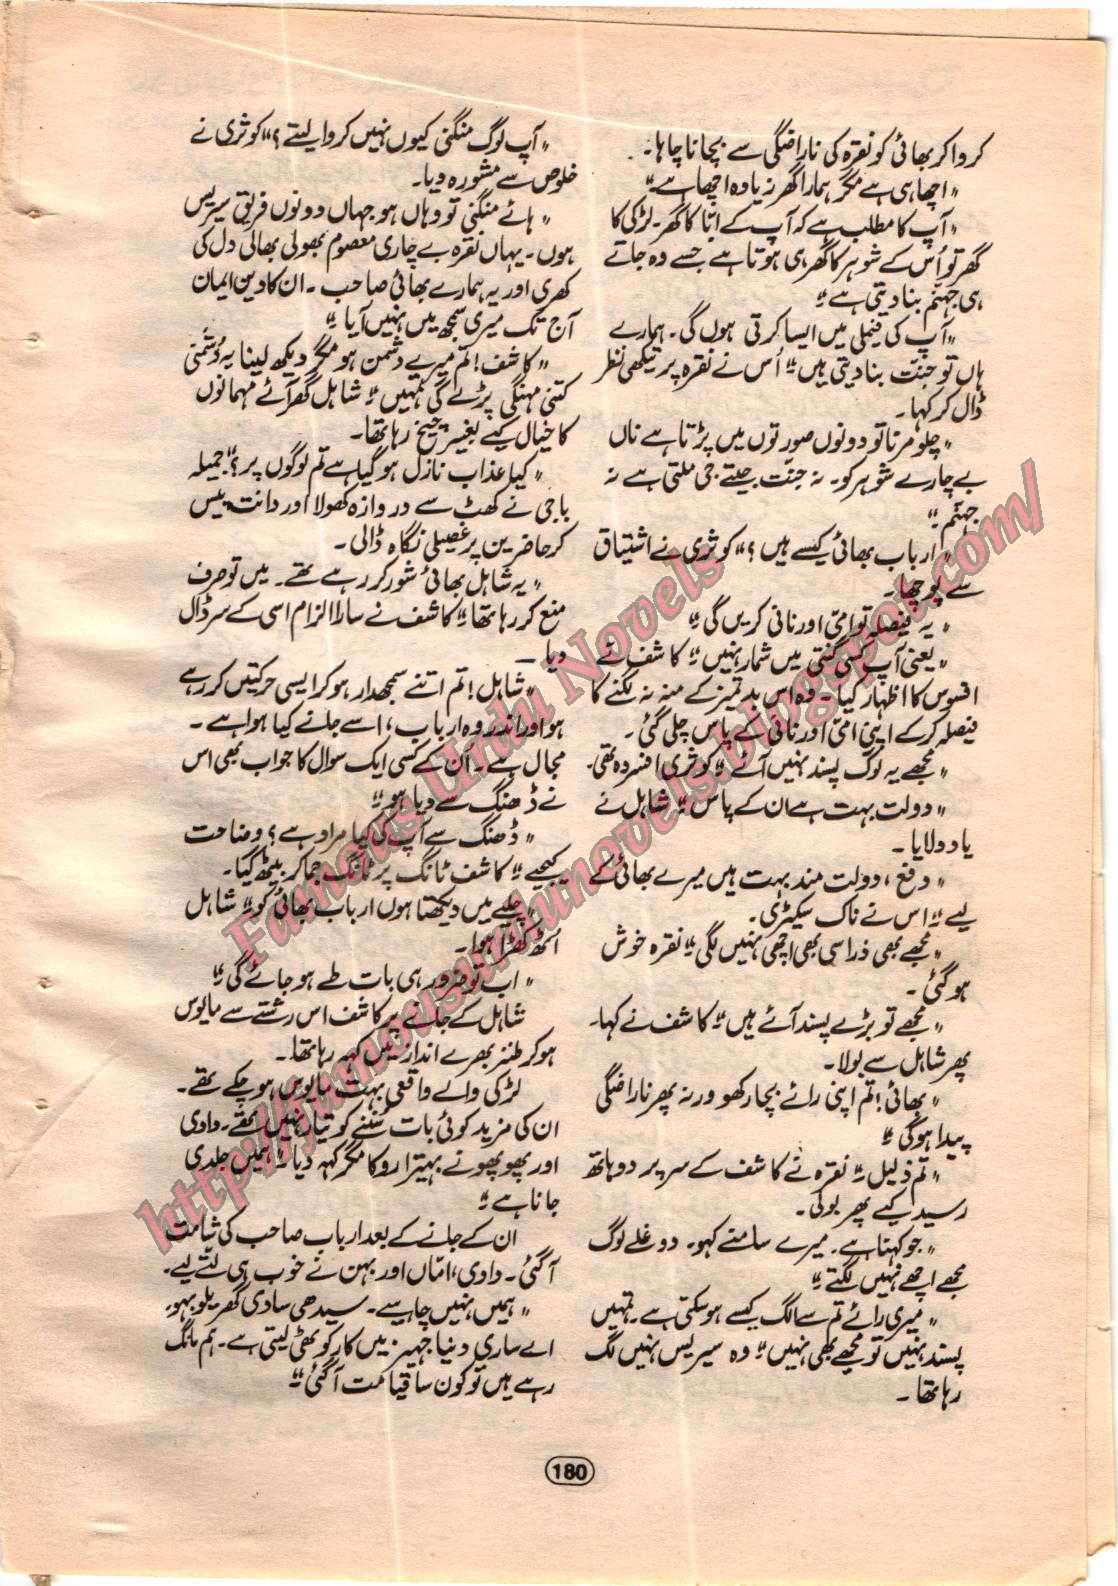 کروا کر بھائی کو نقرہ کی ناراضگی سے بچانا چاہا۔
"اچھا ہی ہے مگر ہمارا گھر زیادہ اچھا ہے"
"آپ کا مطلب ہے کہ آپ کے ابا کا گھر۔ لڑکی کا
گھر تو اُس کے شوہر کا گھر ہی ہوتا ہے جسے وہ جاتے
ہی جہنم بنا دیتی ہے"
"آپ کی فیملی میں ایسا کرتی ہوں گی۔ ہمارے
ہاں تو جنت بنا دیتی ہیں" اُس نے نقرہ پر تیکھی نظر
ڈال کر کہا۔
"چلو مرنا تو دونوں صورتوں میں پڑتا ہے ناں
بے چارے شوہر کو۔ نہ جنت جیتے جی ملتی ہے نہ
جہنم"
"ارباب بھائی کیسے ہیں؟" کوثری نے اشتیاق
سے پوچھا۔
"یہ فیصلہ تو امی اور نانی کریں گی"
"یعنی آپ کسی گنتی میں شمار نہیں" کاشف نے
افسوس کا اظہار کیا۔ وہ اس بدتمیز کے منہ نہ لگنے کا
فیصلہ کر کے اپنی امی اور نانی کے پاس چلی گئی۔
"مجھے یہ لوگ پسند نہیں آئے" کوثری افسردہ تھی۔
"دولت بہت ہے ان کے پاس" شاہل نے
یاد دلایا۔
"دفع، دولت مند بہت ہیں میرے بھائی کے
لیے" اس نے ناک سکیڑی۔
"مجھے بھی ذرا سی بھی اچھی نہیں لگی" نقرہ خوش
ہو گئی۔
"مجھے تو بڑے پسند آئے ہیں" کاشف نے کہا۔
پھر شاہل سے بولا۔
"بھائی! تم اپنی رائے بچا رکھو ورنہ پھر ناراضگی
پیدا ہو گی"
"تم ذلیل" نقرہ نے کاشف کے سر پر دو ہاتھ
رسید کیے پھر بولی۔
"جو کہنا ہے۔ میرے سامنے کہو۔ دوغلے لوگ
مجھے اچھے نہیں لگتے"
"میری رائے تم سے الگ کیسے ہو سکتی ہے۔ تمہیں
پسند نہیں تو مجھے بھی نہیں" وہ سیریس نہیں لگ
رہا تھا۔
"آپ لوگ منگنی کیوں نہیں کروا لیتے؟" کوثری نے
خلوص سے مشورہ دیا۔
"ہائے منگنی تو وہاں ہو جہاں دونوں فریق سیریس
ہوں۔ یہاں نقرہ بے چاری معصوم بھولی بھالی دل کی
کھری اور یہ ہمارے بھائی صاحب۔ ان کا دین ایمان
آج تک میری سمجھ میں نہیں آیا"
"کاشف! تم میرے دشمن ہو مگر دیکھ لینا یہ دُشمنی
کتنی مہنگی پڑے گی تمہیں" شاہل گھر آئے مہمانوں
کا خیال کیے بغیر چیخ رہا تھا۔
"کیا عذاب نازل ہو گیا ہے تم لوگوں پر؟" جمیلہ
باجی نے کھٹ سے دروازہ کھولا اور دانت پیس
کر حاضرین پر غصیلی نگاہ ڈالی۔
"یہ شاہل بھائی شور کر رہے تھے۔ میں تو صرف
منع کر رہا تھا" کاشف نے سارا الزام اسی کے سر ڈال
دیا۔
"شاہل! تم اتنے سمجھدار ہو کر ایسی حرکتیں کر رہے
ہو اور اندر وہ ارباب، اسے جانے کیا ہوا ہے۔
مجال ہے۔ اُن کے کسی ایک سوال کا جواب بھی اس
نے ڈھنگ سے دیا ہو"
"ڈھنگ سے آپ کی کیا مراد ہے؟ وضاحت
کیجیے" کاشف ٹانگ پر ٹانگ جما کر بیٹھ گیا۔
"چلیے میں دیکھتا ہوں ارباب بھائی کو" شاہل
اُٹھ کھڑا ہوا۔
"اب تو ضرور ہی بات طے ہو جائے گی"
شاہل کے جانے پر کاشف اس رشتے سے مایوس
ہو کر طنز بھرے انداز میں کہہ رہا تھا۔
لڑکی والے واقعی بہت مایوس ہو چکے تھے۔
ان کی مزید کوئی بات سُننے کو تیار نہیں تھے۔ دادی
اور پھوپھو نے بہتیرا روکا مگر کہہ دیا "ہمیں جلدی
جانا ہے"
ان کے جانے کے بعد ارباب صاحب کی شامت
آ گئی۔ دادی، امّاں اور بہن نے خوب ہی لتے لیے۔
"ہمیں نہیں چاہیے۔ سیدھی سادی گھریلو بہو۔
اے ساری دنیا جہیز میں کار کوٹھی لیتی ہے۔ ہم مانگ
رہے ہیں تو کون سا قیامت آ گئی"
180
Famous Urdu Novels